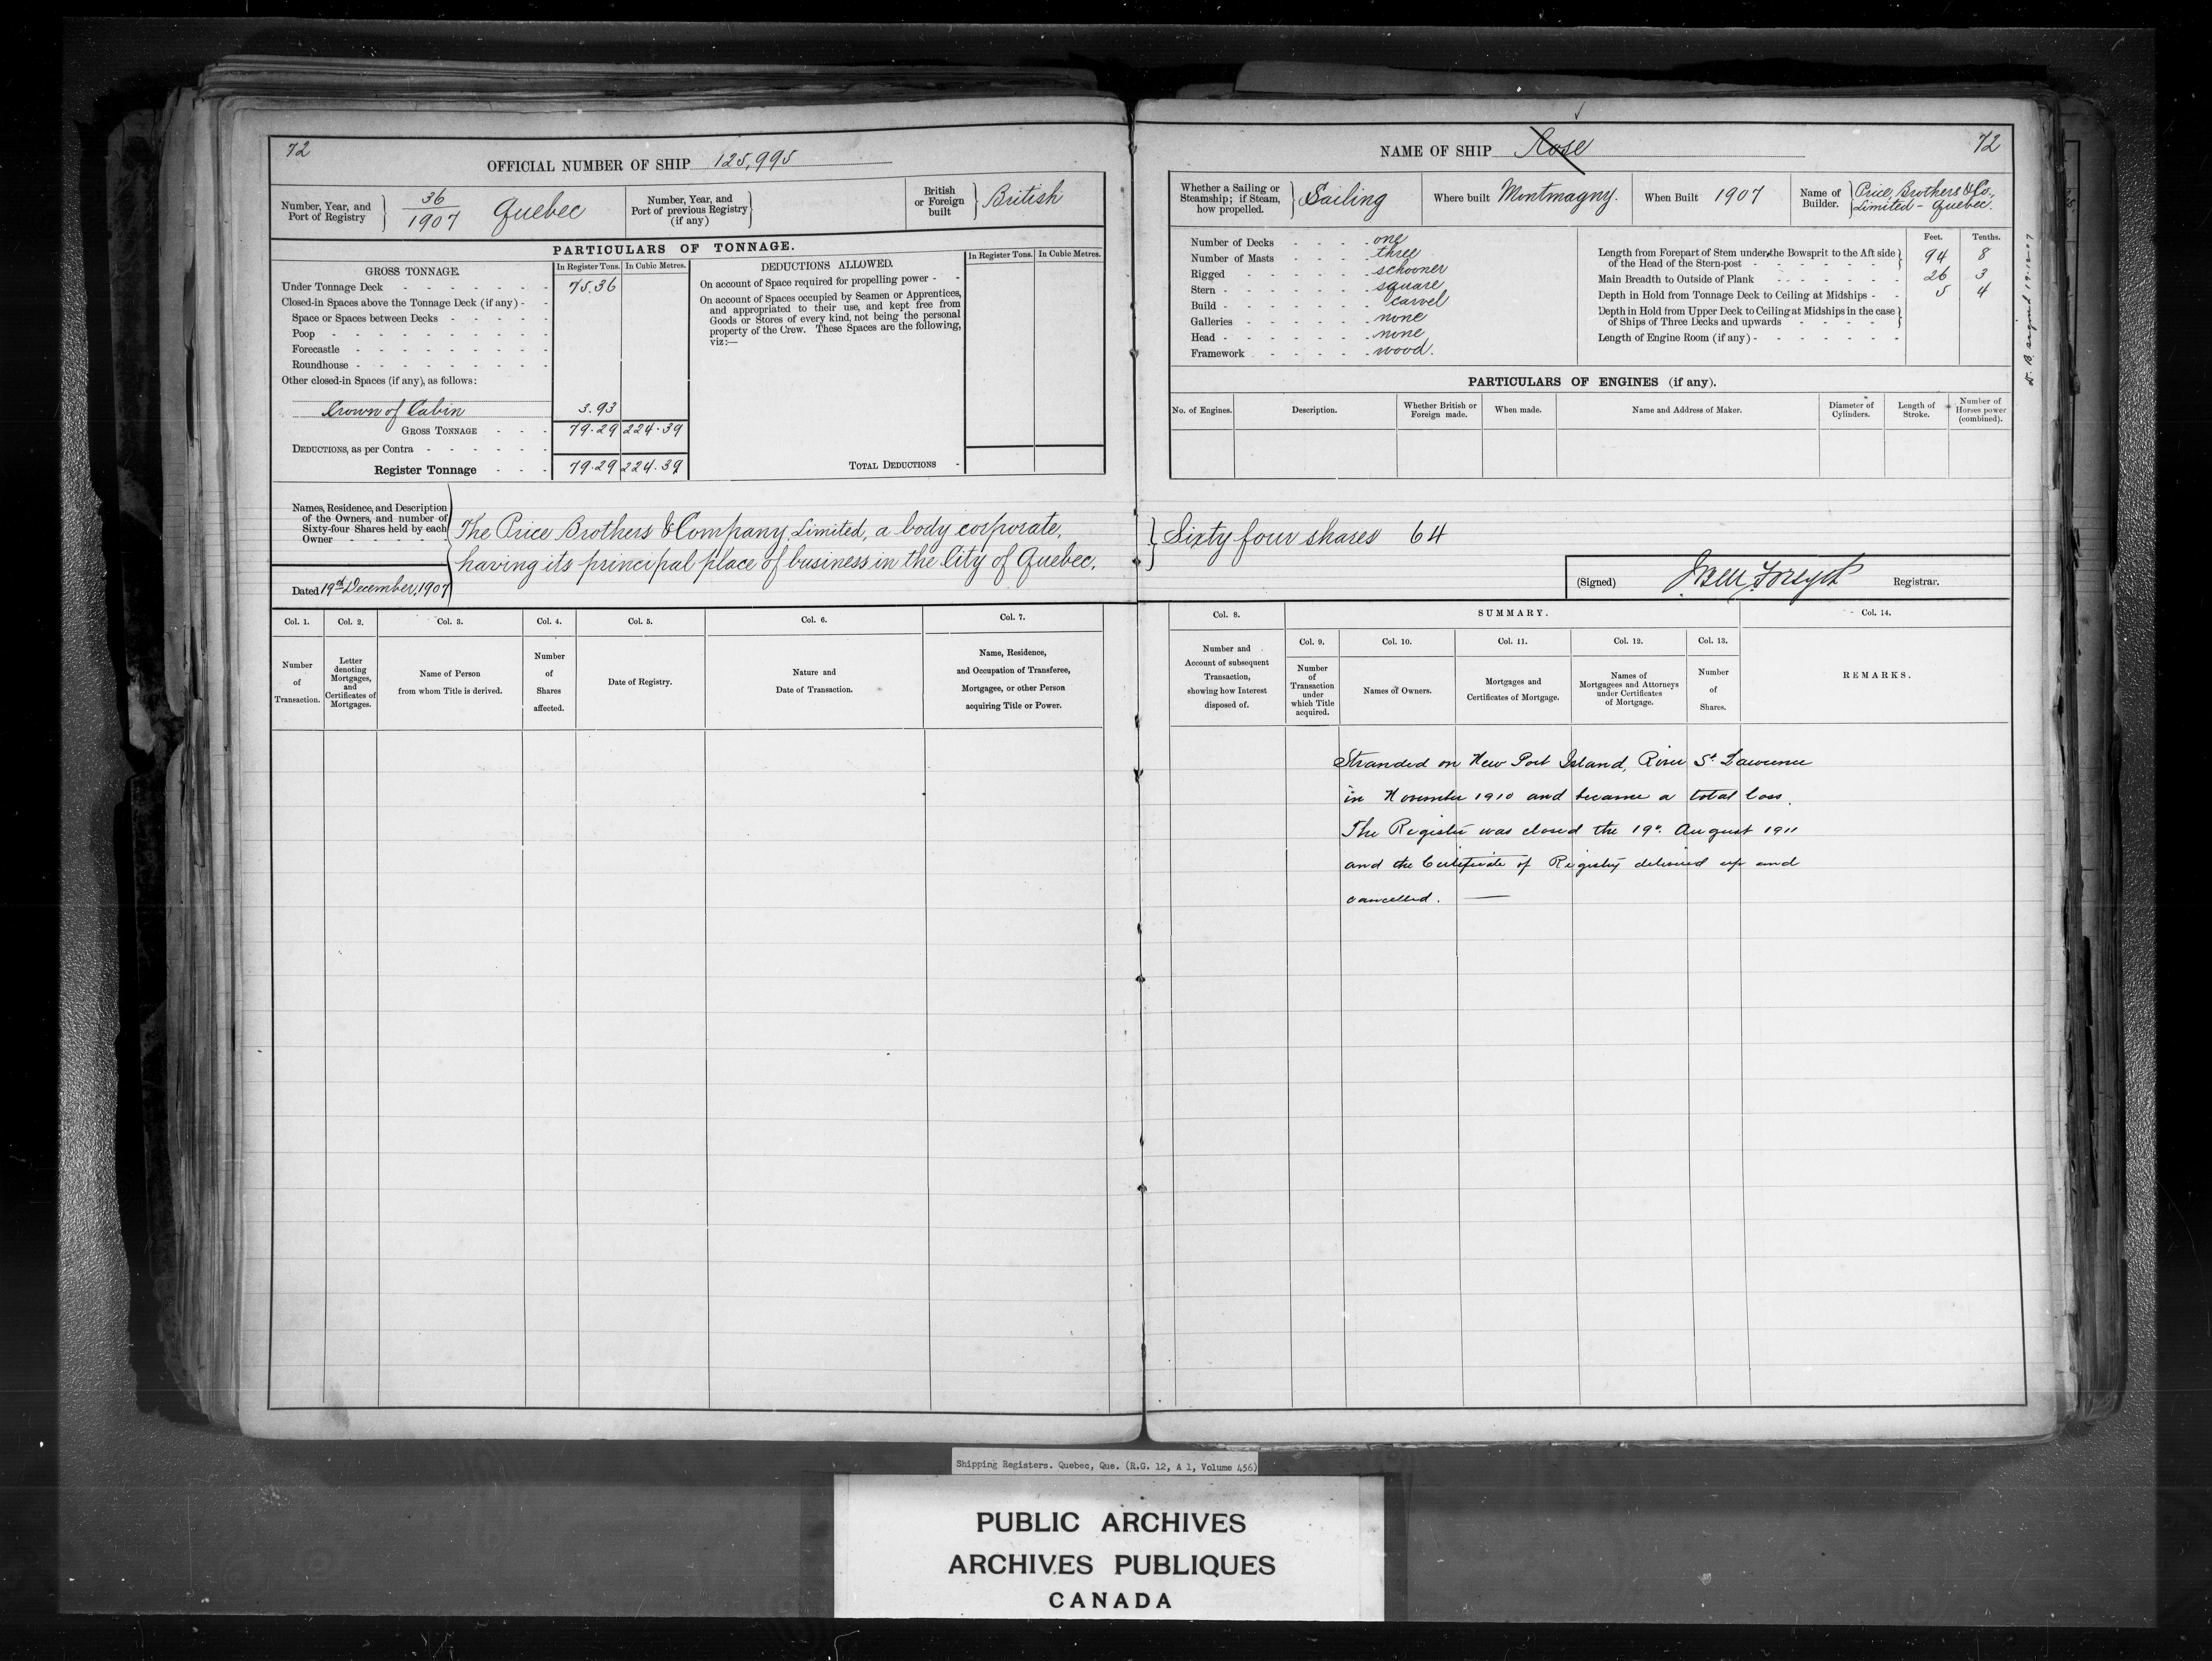 72
OFFICIAL NUMBER OF SHIP 125,995
Number, Year, and Port of Registry } 36/1907 Quebec
Number, Year, and Port of previous Registry (if any) }
British or Foreign built } British
PARTICULARS OF TONNAGE.
GROSS TONNAGE. In Register Tons. In Cubic Metres.
Under Tonnage Deck - - - - - - - 75.36
Closed-in Spaces above the Tonnage Deck (if any) - -
Space or Spaces between Decks - - - - -
Poop - - - - - - - - -
Forecastle - - - - - - - -
Roundhouse - - - - - - - - -
Other closed-in Spaces (if any), as follows:
Crown of Cabin 3.93
GROSS TONNAGE - - - 79.29 224.39
DEDUCTIONS, as per Contra - - - - - -
Register Tonnage - - - 79.29 224.39
DEDUCTIONS ALLOWED. In Register Tons. In Cubic Metres.
On account of Space required for propelling power - -
On account of Spaces occupied by Seamen or Apprentices,
and appropriated to their use, and kept free from
Goods or Stores of every kind, not being the personal
property of the Crew. These Spaces are the following,
viz:—
TOTAL DEDUCTIONS -
Names, Residence, and Description
of the Owners, and number of
Sixty-four Shares held by each
Owner - - - - -
The Price Brothers & Company, Limited, a body corporate,
having its principal place of business in the City of Quebec.
Dated 19th December, 1907
Col. 1. Number of Transaction.
Col. 2. Letter denoting Mortgages, and Certificates of Mortgages.
Col. 3. Name of Person from whom Title is derived.
Col. 4. Number of Shares affected.
Col. 5. Date of Registry.
Col. 6. Nature and Date of Transaction.
Col. 7. Name, Residence, and Occupation of Transferee, Mortgagee, or other Person acquiring Title or Power.
NAME OF SHIP Rose
72
Whether a Sailing or Steamship; if Steam, how propelled. } Sailing
Where built Montmagny.
When Built 1907
Name of Builder. } Price Brothers & Co., Limited - Quebec.
Number of Decks - - - - one
Number of Masts - - - - three
Rigged - - - - - - schooner
Stern - - - - - - - square
Build - - - - - - - carvel
Galleries - - - - - - none
Head - - - - - - - none
Framework - - - - - wood.
Feet. Tenths.
Length from Forepart of Stem under the Bowsprit to the Aft side
of the Head of the Stern-post - - - - - - - 94 8
Main Breadth to Outside of Plank - - - - - - 26 3
Depth in Hold from Tonnage Deck to Ceiling at Midships - - 5 4
Depth in Hold from Upper Deck to Ceiling at Midships in the case
of Ships of Three Decks and upwards - - - - -
Length of Engine Room (if any) - - - - - - -
signed 19-12-07
PARTICULARS OF ENGINES (if any).
No. of Engines.
Description.
Whether British or Foreign made.
When made.
Name and Address of Maker.
Diameter of Cylinders.
Length of Stroke.
Number of Horses power (combined).
} Sixty four shares 64
(Signed) Forsyth Registrar.
Col. 8. Number and Account of subsequent Transaction, showing how Interest disposed of.
SUMMARY.
Col. 9. Number of Transaction under which Title acquired.
Col. 10. Names of Owners.
Col. 11. Mortgages and Certificates of Mortgage.
Col. 12. Names of Mortgagees and Attorneys under Certificates of Mortgage.
Col. 13. Number of Shares.
Col. 14. REMARKS.
Stranded on New Port Island, River St. Lawrence
in November 1910 and became a total loss.
The Register was closed the 19th August 1911
and the Certificate of Registry delivered up and
cancelled. —
Shipping Registers. Quebec, Que. (R.G. 12, A 1, Volume 456)
PUBLIC ARCHIVES
ARCHIVES PUBLIQUES
CANADA